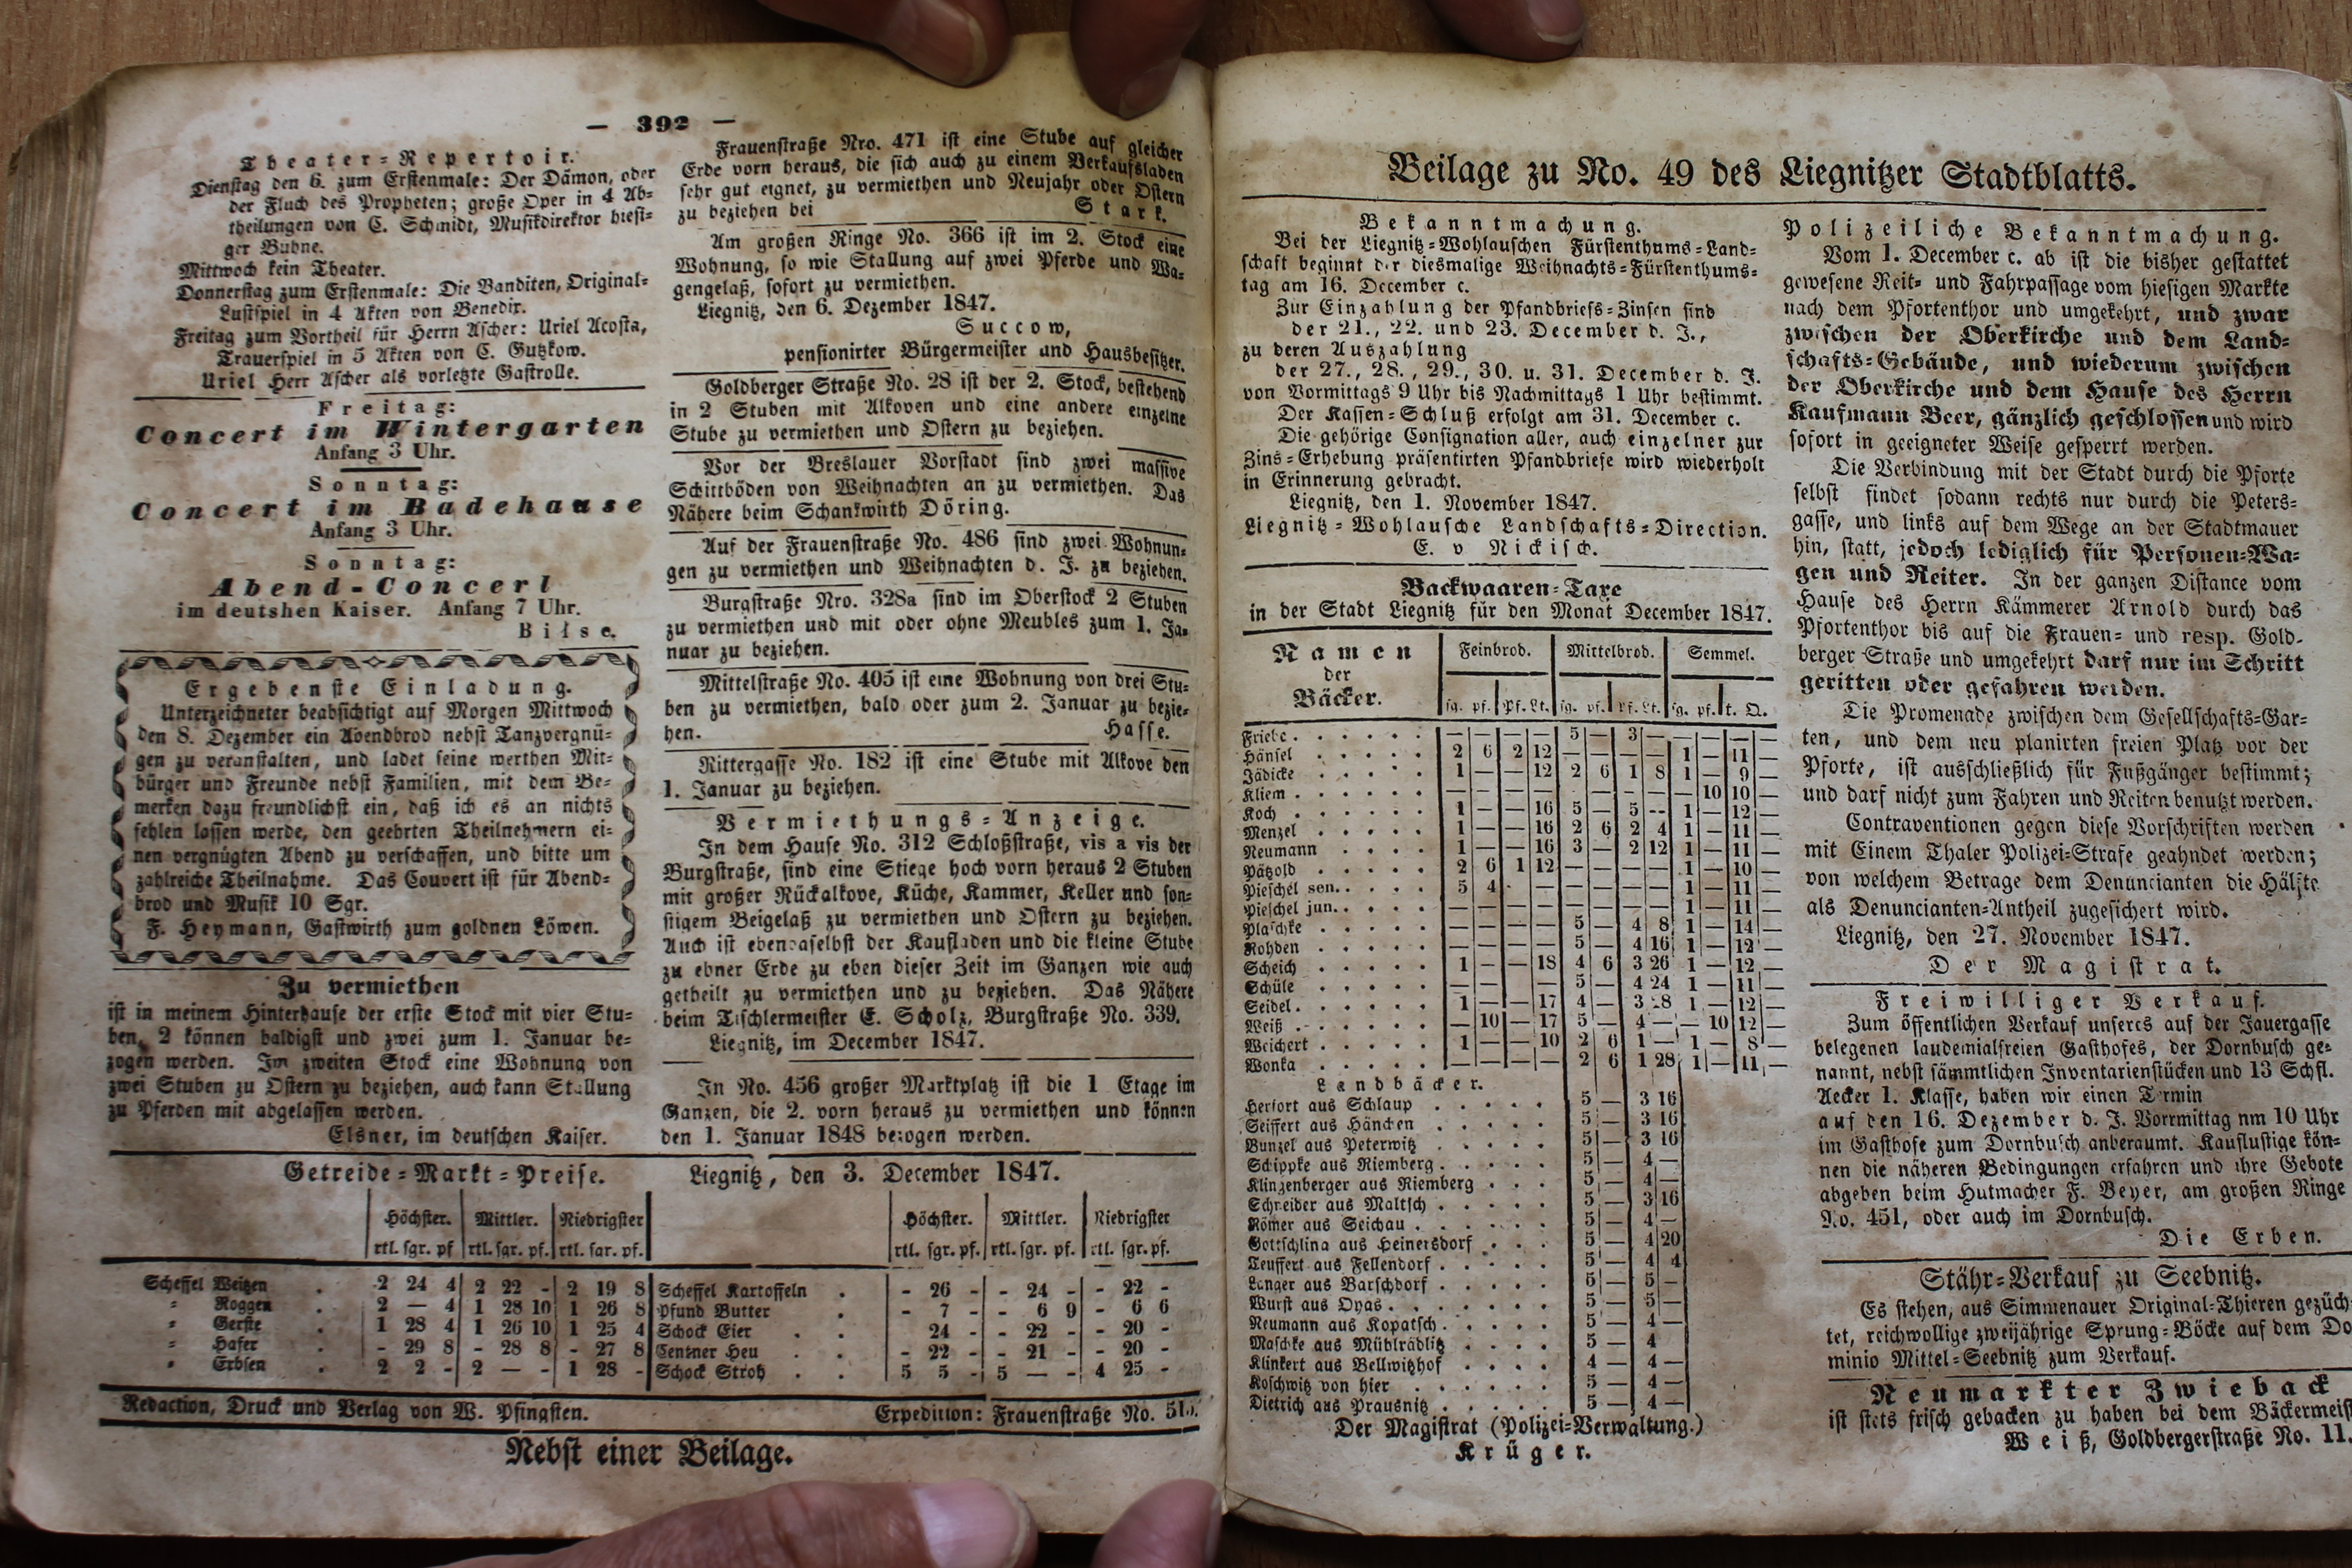 — 392 —
Theater-Repertoir.
Dienstag den 6. zum Erstenmale: Der Dämon, oder
der Fluch des Propheten; große Oper in 4 Ab-
theilungen von C. Schmidt, Musikdirektor hiesi-
ger Bühne.
Mittwoch kein Theater.
Donnerstag zum Erstenmale: Die Banditen, Original-
Lustspiel in 4 Akten von Benedix.
Freitag zum Vortheil für Herrn Ascher: Uriel Acosta,
Trauerspiel in 5 Akten von C. Gutzkow.
Uriel Herr Ascher als vorletzte Gastrolle.
Freitag:
Concert im Wintergarten
Anfang 3 Uhr.
Sonntag:
Concert im Badehause
Anfang 3 Uhr.
Sonntag:
Abend-Concert
im deutshen Kaiser. Anfang 7 Uhr.
Bilse.
Ergebenste Einladung.
Unterzeichneter beabsichtigt auf Morgen Mittwoch
den 8. Dezember ein Abendbrod nebst Tanzvergnü-
gen zu veranstalten, und ladet seine werthen Mit-
bürger und Freunde nebst Familien, mit dem Be-
merken dazu freundlichst ein, daß ich es an nichts
fehlen lassen werde, den geehrten Theilnehmern ei-
nen vergnügten Abend zu verschaffen, und bitte um
zahlreiche Theilnahme. Das Couvert ist für Abend-
brod und Musik 10 Sgr.
F. Heymann, Gastwirth zum goldnen Löwen.
Zu vermiethen
ist in meinem Hinterhause der erste Stock mit vier Stu-
ben, 2 können baldigst und zwei zum 1. Januar be-
zogen werden. Im zweiten Stock eine Wohnung von
zwei Stuben zu Ostern zu beziehen, auch kann Stallung
zu Pferden mit abgelassen werden.
Elsner, im deutschen Kaiser.
Frauenstraße Nro. 471 ist eine Stube auf gleicher
Erde vorn heraus, die sich auch zu einem Verkaufsladen
sehr gut eignet, zu vermiethen und Neujahr oder Ostern
zu beziehen bei Stark.
Am großen Ringe No. 366 ist im 2. Stock eine
Wohnung, so wie Stallung auf zwei Pferde und Wa-
gengelaß, sofort zu vermiethen.
Liegnitz, den 6. Dezember 1847.
Succow,
pensionirter Bürgermeister und Hausbesitzer.
Goldberger Straße No. 28 ist der 2. Stock, bestehend
in 2 Stuben mit Alkoven und eine andere einzelne
Stube zu vermiethen und Ostern zu beziehen.
Vor der Breslauer Vorstadt sind zwei massive
Schittböden von Weihnachten an zu vermiethen. Das
Nähere beim Schankwirth Döring.
Auf der Frauenstraße No. 486 sind zwei Wohnun-
gen zu vermiethen und Weihnachten d. J. zu beziehen.
Burgstraße Nro. 328a sind im Oberstock 2 Stuben
zu vermiethen und mit oder ohne Meubles zum 1. Ja-
nuar zu beziehen.
Mittelstraße No. 405 ist eine Wohnung von drei Stu-
ben zu vermiethen, bald oder zum 2. Januar zu bezie-
hen. Hasse.
Rittergasse No. 182 ist eine Stube mit Alkove den
1. Januar zu beziehen.
Vermiethungs-Anzeige.
In dem Hause No. 312 Schloßstraße, vis a vis der
Burgstraße, sind eine Stiege hoch vorn heraus 2 Stuben
mit großer Rückalkove, Küche, Kammer, Keller und son-
stigem Beigelaß zu vermiethen und Ostern zu beziehen.
Auch ist ebendaselbst der Kaufladen und die kleine Stube
zu ebner Erde zu eben dieser Zeit im Ganzen wie auch
getheilt zu vermiethen und zu beziehen. Das Nähere
beim Tischlermeister E. Scholz, Burgstraße No. 339.
Liegnitz, im December 1847.
In No. 456 großer Marktplatz ist die 1 Etage im
Ganzen, die 2. vorn heraus zu vermiethen und können
den 1. Januar 1848 bezogen werden.
Getreide-Markt-Preise. Liegnitz, den 3. December 1847.
Höchster. Mittler. Niedrigster Höchster. Mittler. Niedrigster
rtl. sgr. pf rtl. sgr. pf. rtl. sgr. pf. rtl. sgr. pf. rtl. sgr. pf. rtl. sgr. pf.
Scheffel Weitzen . 2 24 4 2 22 - 2 19 8 Scheffel Kartoffeln . - 26 - - 24 - - 22 -
" Roggen . 2 — 4 1 28 10 1 26 8 Pfund Butter . - 7 - - 6 9 - 6 6
" Gerste . 1 28 4 1 26 10 1 25 4 Schock Eier . . 24 - - 22 - - 20 -
" Hafer . - 29 8 - 28 8 - 27 8 Centner Heu . . - 22 - - 21 - - 20 -
" Erbsen . 2 2 - 2 — - 1 28 - Schock Stroh . . 5 5 - 5 — - 4 25 -
Redaction, Druck und Verlag von W. Pfingsten. Expedition: Frauenstraße No. 515.
Nebst einer Beilage.
Beilage zu No. 49 des Liegnitzer Stadtblatts.
Bekanntmachung.
Bei der Liegnitz-Wohlauschen Fürstenthums-Land-
schaft beginnt der diesmalige Weihnachts-Fürstenthums-
tag am 16. December c.
Zur Einzahlung der Pfandbriefs-Zinsen sind
der 21., 22. und 23. December d. J.,
zu deren Auszahlung
der 27., 28., 29., 30. u. 31. December d. J.
von Vormittags 9 Uhr bis Nachmittags 1 Uhr bestimmt.
Der Kassen-Schluß erfolgt am 31. December c.
Die gehörige Consignation aller, auch einzelner zur
Zins-Erhebung präsentirten Pfandbriefe wird wiederholt
in Erinnerung gebracht.
Liegnitz, den 1. November 1847.
Liegnitz-Wohlausche Landschafts-Direction.
E. v Nickisch.
Backwaaren-Taxe
in der Stadt Liegnitz für den Monat December 1847.
Namen der Bäcker. Feinbrod. Mittelbrod. Semmel.
sg. pf. Pf. Lt. sg. pf. Pf. Lt. sg. pf. Lt. Q.
Friebe . . . . . . — — — — 5 — 3 — — — — —
Hänsel . . . . . 2 6 2 12 — — — — 1 — 11 —
Jädicke . . . . . 1 — — 12 2 6 1 8 1 — 9 —
Kliem . . . . . . — — — — — — — — — 10 10 —
Koch . . . . . . 1 — — 16 5 — 5 -- 1 — 12 —
Menzel . . . . . 1 — — 16 2 6 2 4 1 — 11 —
Neumann . . . . 1 — — 16 3 — 2 12 1 — 11 —
Pätzold . . . . . 2 6 1 12 — — — — 1 — 10 —
Pieschel sen. . . . . 5 4 - — — — — — 1 — 11 —
Pieschel jun. . . . . — — — — — — — — 1 — 11 —
Plaschke . . . . . — — — — 5 — 4 8 1 — 14 —
Rohden . . . . . — — — — 5 — 4 16 1 — 12 —
Scheich . . . . . 1 — — 18 4 6 3 26 1 — 12 —
Schüle . . . . . — — — — 5 — 4 24 1 — 11 —
Seidel . . . . . . 1 — — 17 4 — 3 28 1 — 12 —
Weiß . . . . . . — 10 — 17 5 — 4 — — 10 12 —
Weichert . . . . . 1 — — 10 2 6 1 — 1 — 8 —
Wonka . . . . . — — — — 2 6 1 28 1 — 11 —
Landbäcker.
Herfort aus Schlaup . . . . . 5 — 3 16
Seiffert aus Hänchen . . . . . 5 — 3 16
Bunzel aus Peterwitz . . . . . 5 — 3 16
Schippke aus Riemberg . . . . . 5 — 4 —
Klinzenberger aus Riemberg . . . 5 — 4 —
Schreider aus Maltsch . . . . . 5 — 3 16
Römer aus Seichau . . . . . . 5 — 4 —
Gottschling aus Heinersdorf . . . 5 — 4 20
Teuffert aus Fellendorf . . . . . 5 — 4 4
Langer aus Barschdorf . . . . . 5 — 5 —
Wurst aus Oyas . . . . . . . 5 — 5 —
Neumann aus Kopatsch . . . . . 5 — 4 —
Maschke aus Mühlrädlitz . . . . 5 — 4
Klinkert aus Bellwitzhof . . . . 4 — 4 —
Koschwitz von hier . . . . . . 5 — 4 —
Dietrich aus Prausnitz . . . . . 5 — 4 —
Der Magistrat (Polizei-Verwaltung.)
Krüger.
Polizeiliche Bekanntmachung.
Vom 1. December c. ab ist die bisher gestattet
gewesene Reit- und Fahrpassage vom hiesigen Markte
nach dem Pfortenthor und umgekehrt, und zwar
zwischen der Oberkirche und dem Land-
schafts-Gebäude, und wiederum zwischen
der Oberkirche und dem Hause des Herrn
Kaufmann Beer, gänzlich geschlossen und wird
sofort in geeigneter Weise gesperrt werden.
Die Verbindung mit der Stadt durch die Pforte
selbst findet sodann rechts nur durch die Peters-
gasse, und links auf dem Wege an der Stadtmauer
hin, statt, jedoch lediglich für Personen-Wa-
gen und Reiter. In der ganzen Distance vom
Hause des Herrn Kämmerer Arnold durch das
Pfortenthor bis auf die Frauen- und resp. Gold-
berger Straße und umgekehrt darf nur im Schritt
geritten oder gefahren werden.
Die Promenade zwischen dem Gesellschafts-Gar-
ten, und dem neu planirten freien Platz vor der
Pforte, ist ausschließlich für Fußgänger bestimmt;
und darf nicht zum Fahren und Reiten benutzt werden.
Contraventionen gegen diese Vorschriften werden
mit Einem Thaler Polizei-Strafe geahndet werden;
von welchem Betrage dem Denuncianten die Hälfte
als Denuncianten-Antheil zugesichert wird.
Liegnitz, den 27. November 1847.
Der Magistrat.
Freiwilliger Verkauf.
Zum öffentlichen Verkauf unseres auf der Jauergasse
belegenen laudemialfreien Gasthofes, der Dornbusch ge-
nannt, nebst sämmtlichen Inventarienstücken und 13 Schfl.
Aecker 1. Klasse, haben wir einen Termin
auf den 16. Dezember d. J. Vorrmittag nm 10 Uhr
im Gasthofe zum Dornbusch anberaumt. Kauflustige kön-
nen die näheren Bedingungen erfahren und ihre Gebote
abgeben beim Hutmacher F. Beyer, am großen Ringe
No. 451, oder auch im Dornbusch.
Die Erben.
Stähr-Verkauf zu Seebnitz.
Es stehen, aus Simmenauer Original-Thieren gezüch-
tet, reichwollige zweijährige Sprung-Böcke auf dem Do
minio Mittel-Seebnitz zum Verkauf.
Neumarkter Zwieback
ist stets frisch gebacken zu haben bei dem Bäckermeist
Weiß, Goldbergerstraße No. 11.